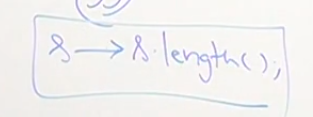 s → s.length();